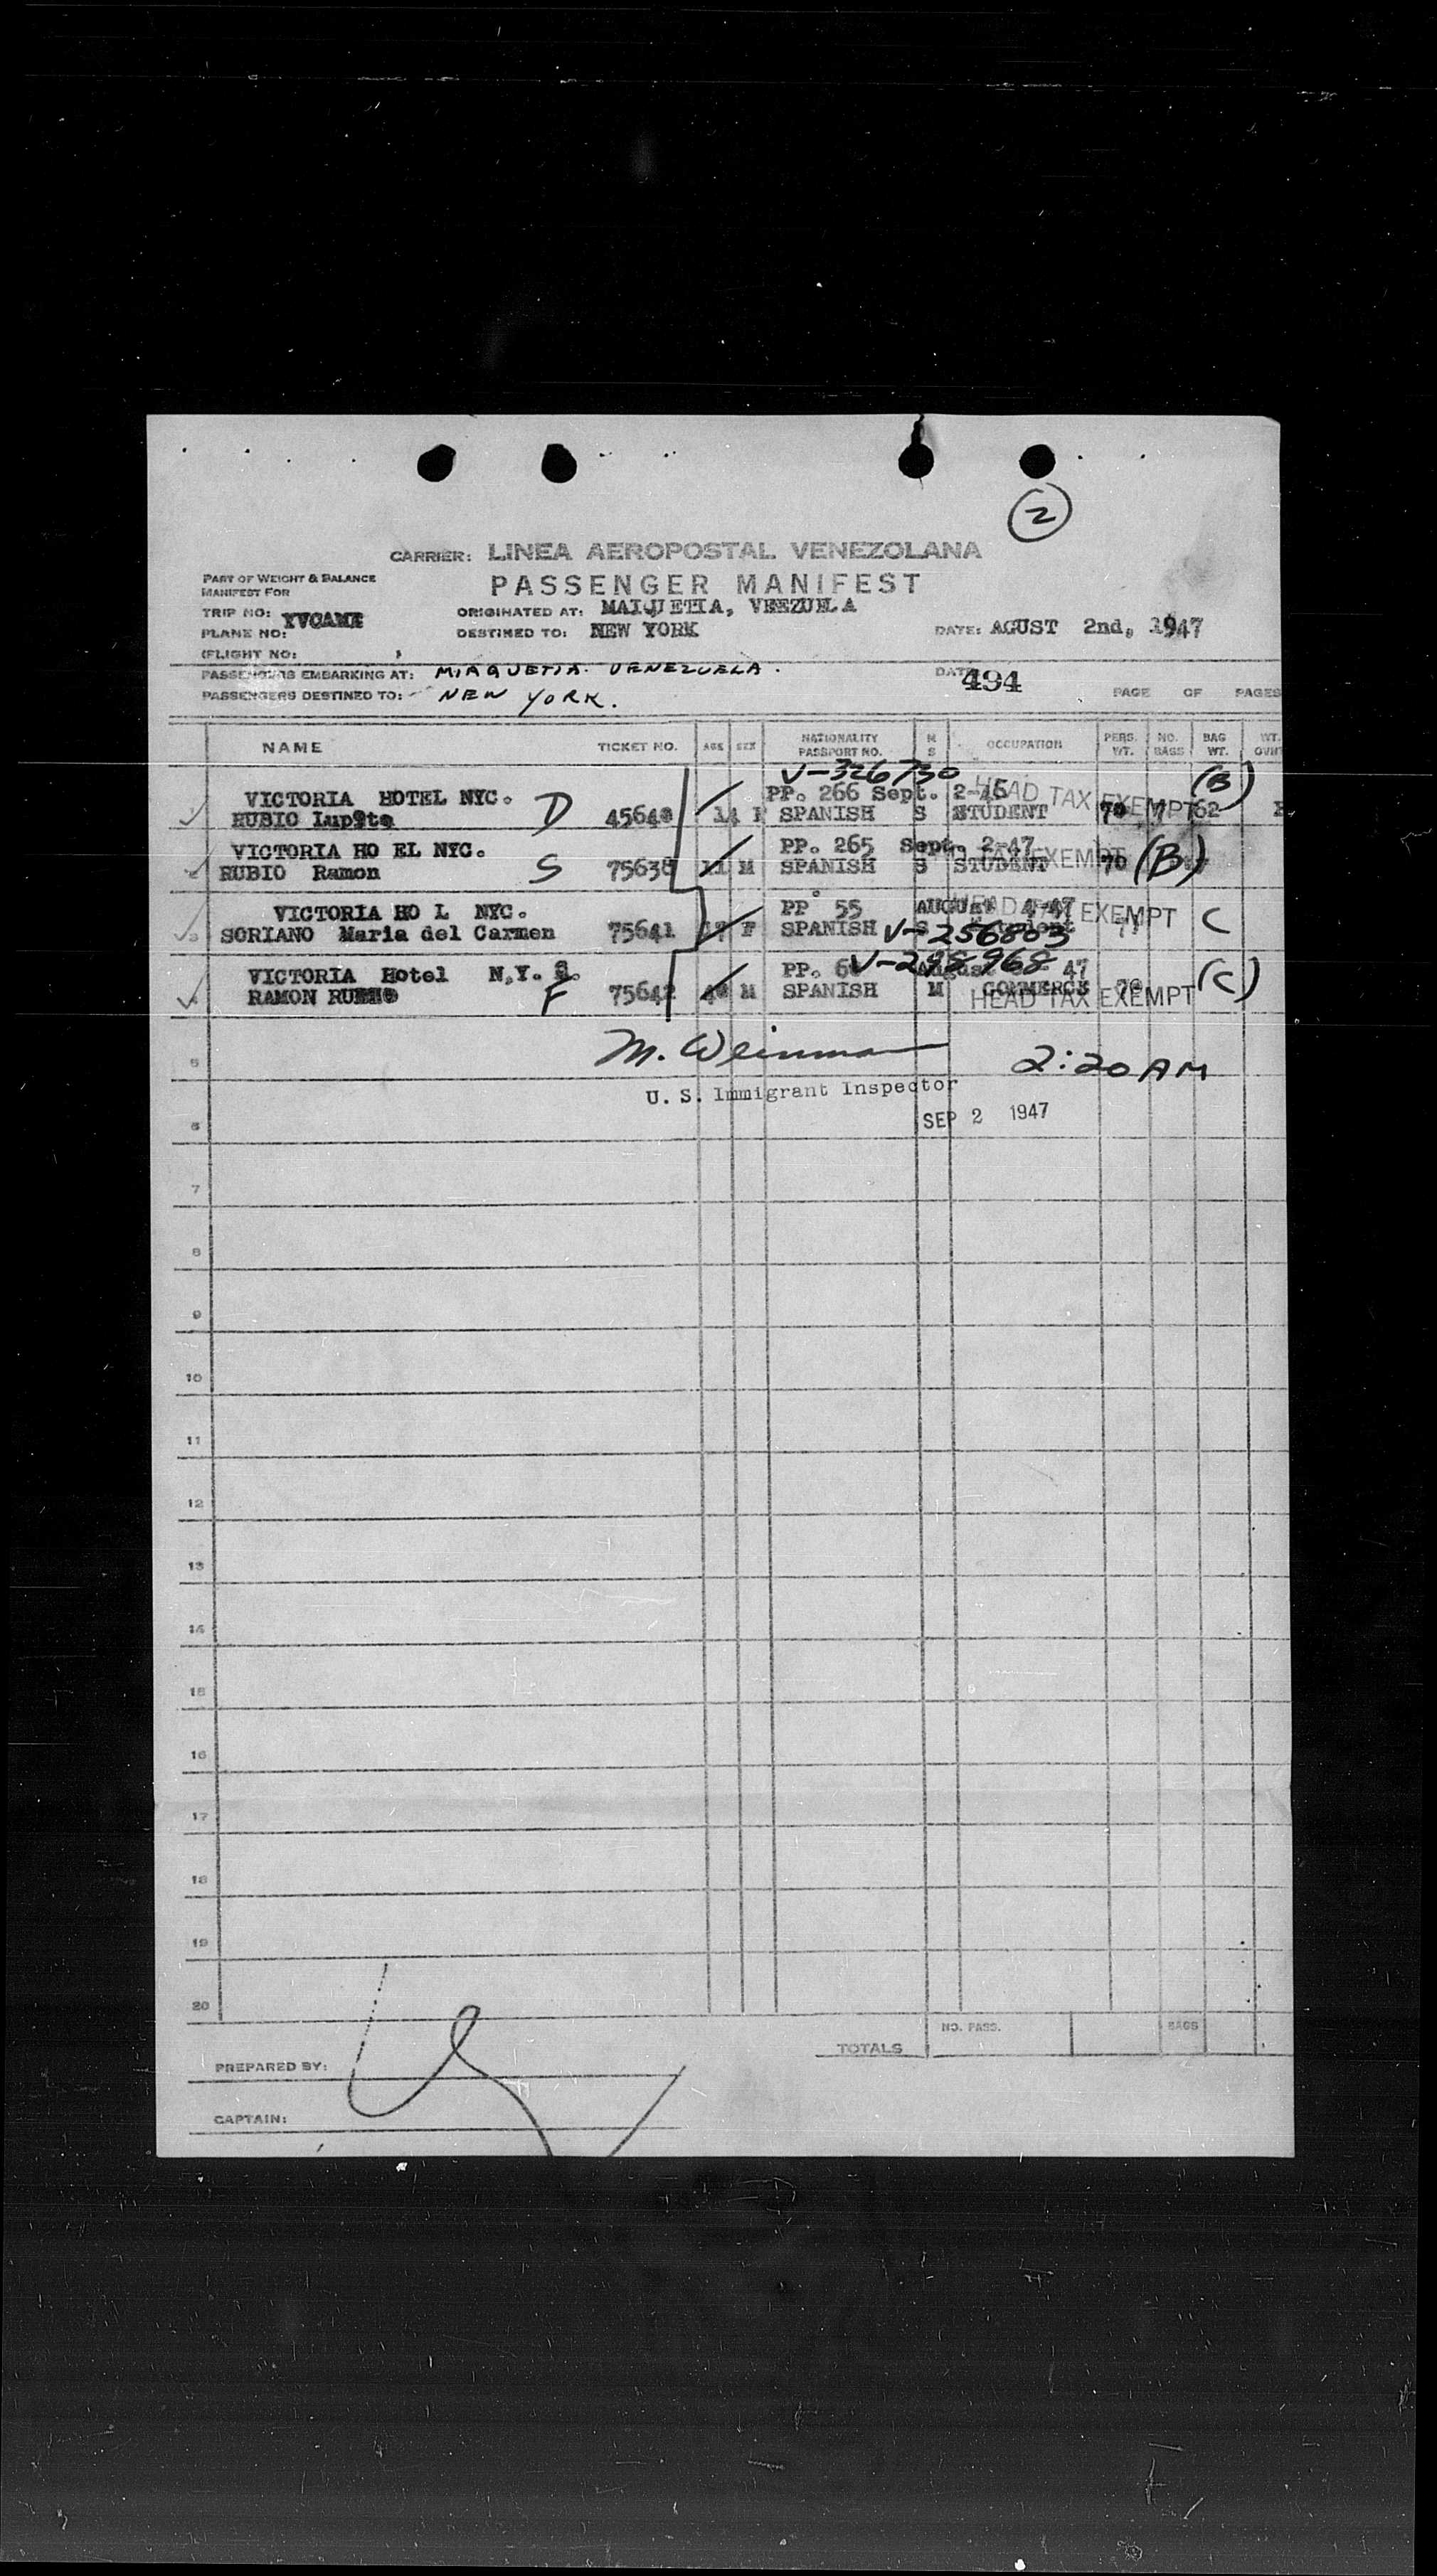 2
CARRIER: LINEA AEROPOSTAL VENEZOLANA
PART OF WEIGHT & BALANCE
MANIFEST FOR
PASSENGER MANIFEST
TRIP NO:
ORIGINATED AT: MAIQUETIA, VEEZUELA
PLANE NO:
DESTINED TO: NEW YORK
DATE: AGUST 2nd, 1947
(FLIGHT NO: )
PASSENGERS EMBARKING AT: MIAQUETIA. VENEZUELA.
494
PASSENGERS DESTINED TO: NEW YORK.
PAGE OF PAGES
NAME TICKET NO. AGE SEX NATIONALITY PASSPORT NO. M S OCCUPATION PERS. WT. NO. BAGS BAG WT. WT.
V-326730
VICTORIA HOTEL NYC. D PP. 266 Sept. HEAD TAX EXEMPT (B)
1 RUBIO 14 SPANISH S STUDENT 70 62
VICTORIA HO EL NYC. S PP. 265 Sept. 2-47 EXEMPT (B)
RUBIO Ramon 11 M SPANISH S STUDENT 70
VICTORIA HO L NYC. PP 55 AUGUST 4-47 HEAD EXEMPT C
3 SORIANO Maria del Carmen 75641 17 F SPANISH V-256803
VICTORIA Hotel N.Y. PP. V-298968 47 (C)
RAMON F M SPANISH M COMMERCE HEAD TAX EXEMPT
M. Weinman 2:20 AM
5
U. S. Immigrant Inspector
SEP 2 1947
6
7
8
9
10
11
12
13
14
15
16
17
18
19
20
NO. PASS. BAGS
TOTALS
PREPARED BY:
CAPTAIN: